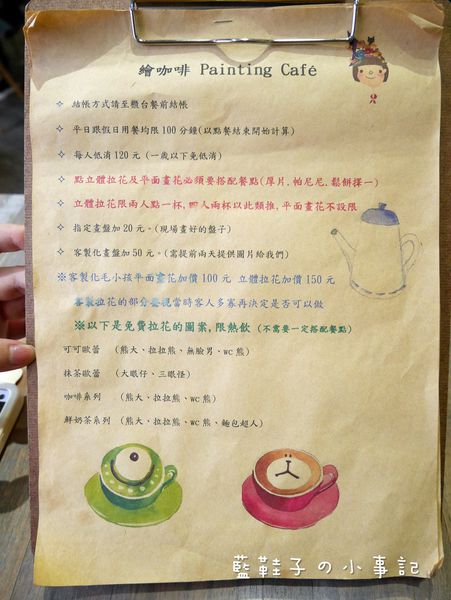 繪咖啡 Painting Café
✧ 結帳方式請至櫃台餐前結帳
✧ 平日跟假日用餐均限100分鐘(以點餐結束開始計算)
✧ 每人低消120元 (一歲以下免低消)
✧ 點立體拉花及平面畫花必須要搭配餐點(厚片,帕尼尼,鬆餅擇一)
✧ 立體拉花限兩人點一杯,四人兩杯以此類推,平面畫花不設限
✧ 指定畫盤加20元。(現場畫好的盤子)
✧ 客製化畫盤加50元。(需提前兩天提供圖片給我們)
※客製化毛小孩平面畫花加價100元 立體拉花加價150元
客製拉花的部分要視當時客人多寡再決定是否可以做
※以下是免費拉花的圖案,限熱飲 (不需要一定搭配餐點)
可可歐蕾 (熊大、拉拉熊、無臉男、wc熊)
抹茶歐蕾 (大眼仔、三眼怪)
咖啡系列 (熊大、拉拉熊、wc熊)
鮮奶茶系列 (熊大、拉拉熊、wc熊、麵包超人)
藍鞋子の小事記